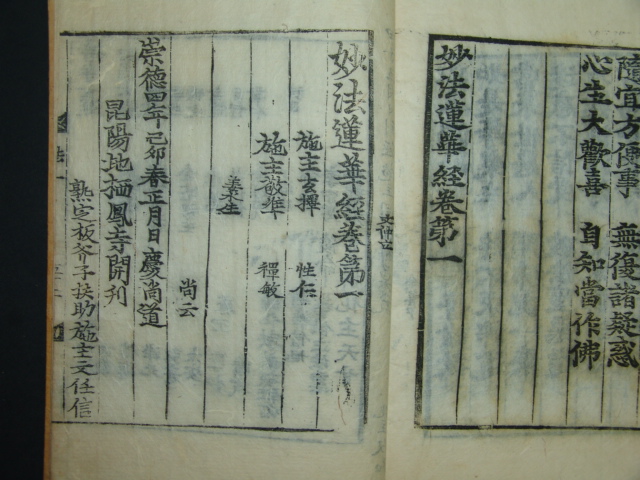 隨宜方便事 無復諸疑惑
心生大歡喜 自知當作佛
妙法蓮華經卷第一
妙法蓮華經卷第一
施主玄揮 性仁
施主敬准 禪敏
姜
尚云
崇德四年己卯春正月日慶尚道
昆陽地栖鳳寺開刋
熟定板斧子扶助施主文任信